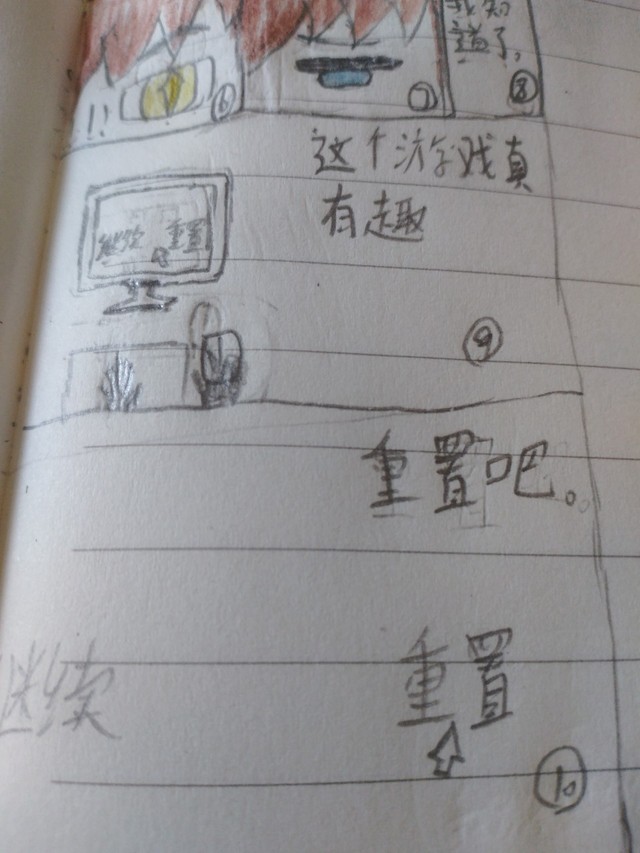 我知
道了,
!!
⑥
⑦
⑧
这个游戏真
有趣
继续 重置
⑨
重置吧。
继续
重置
⑩